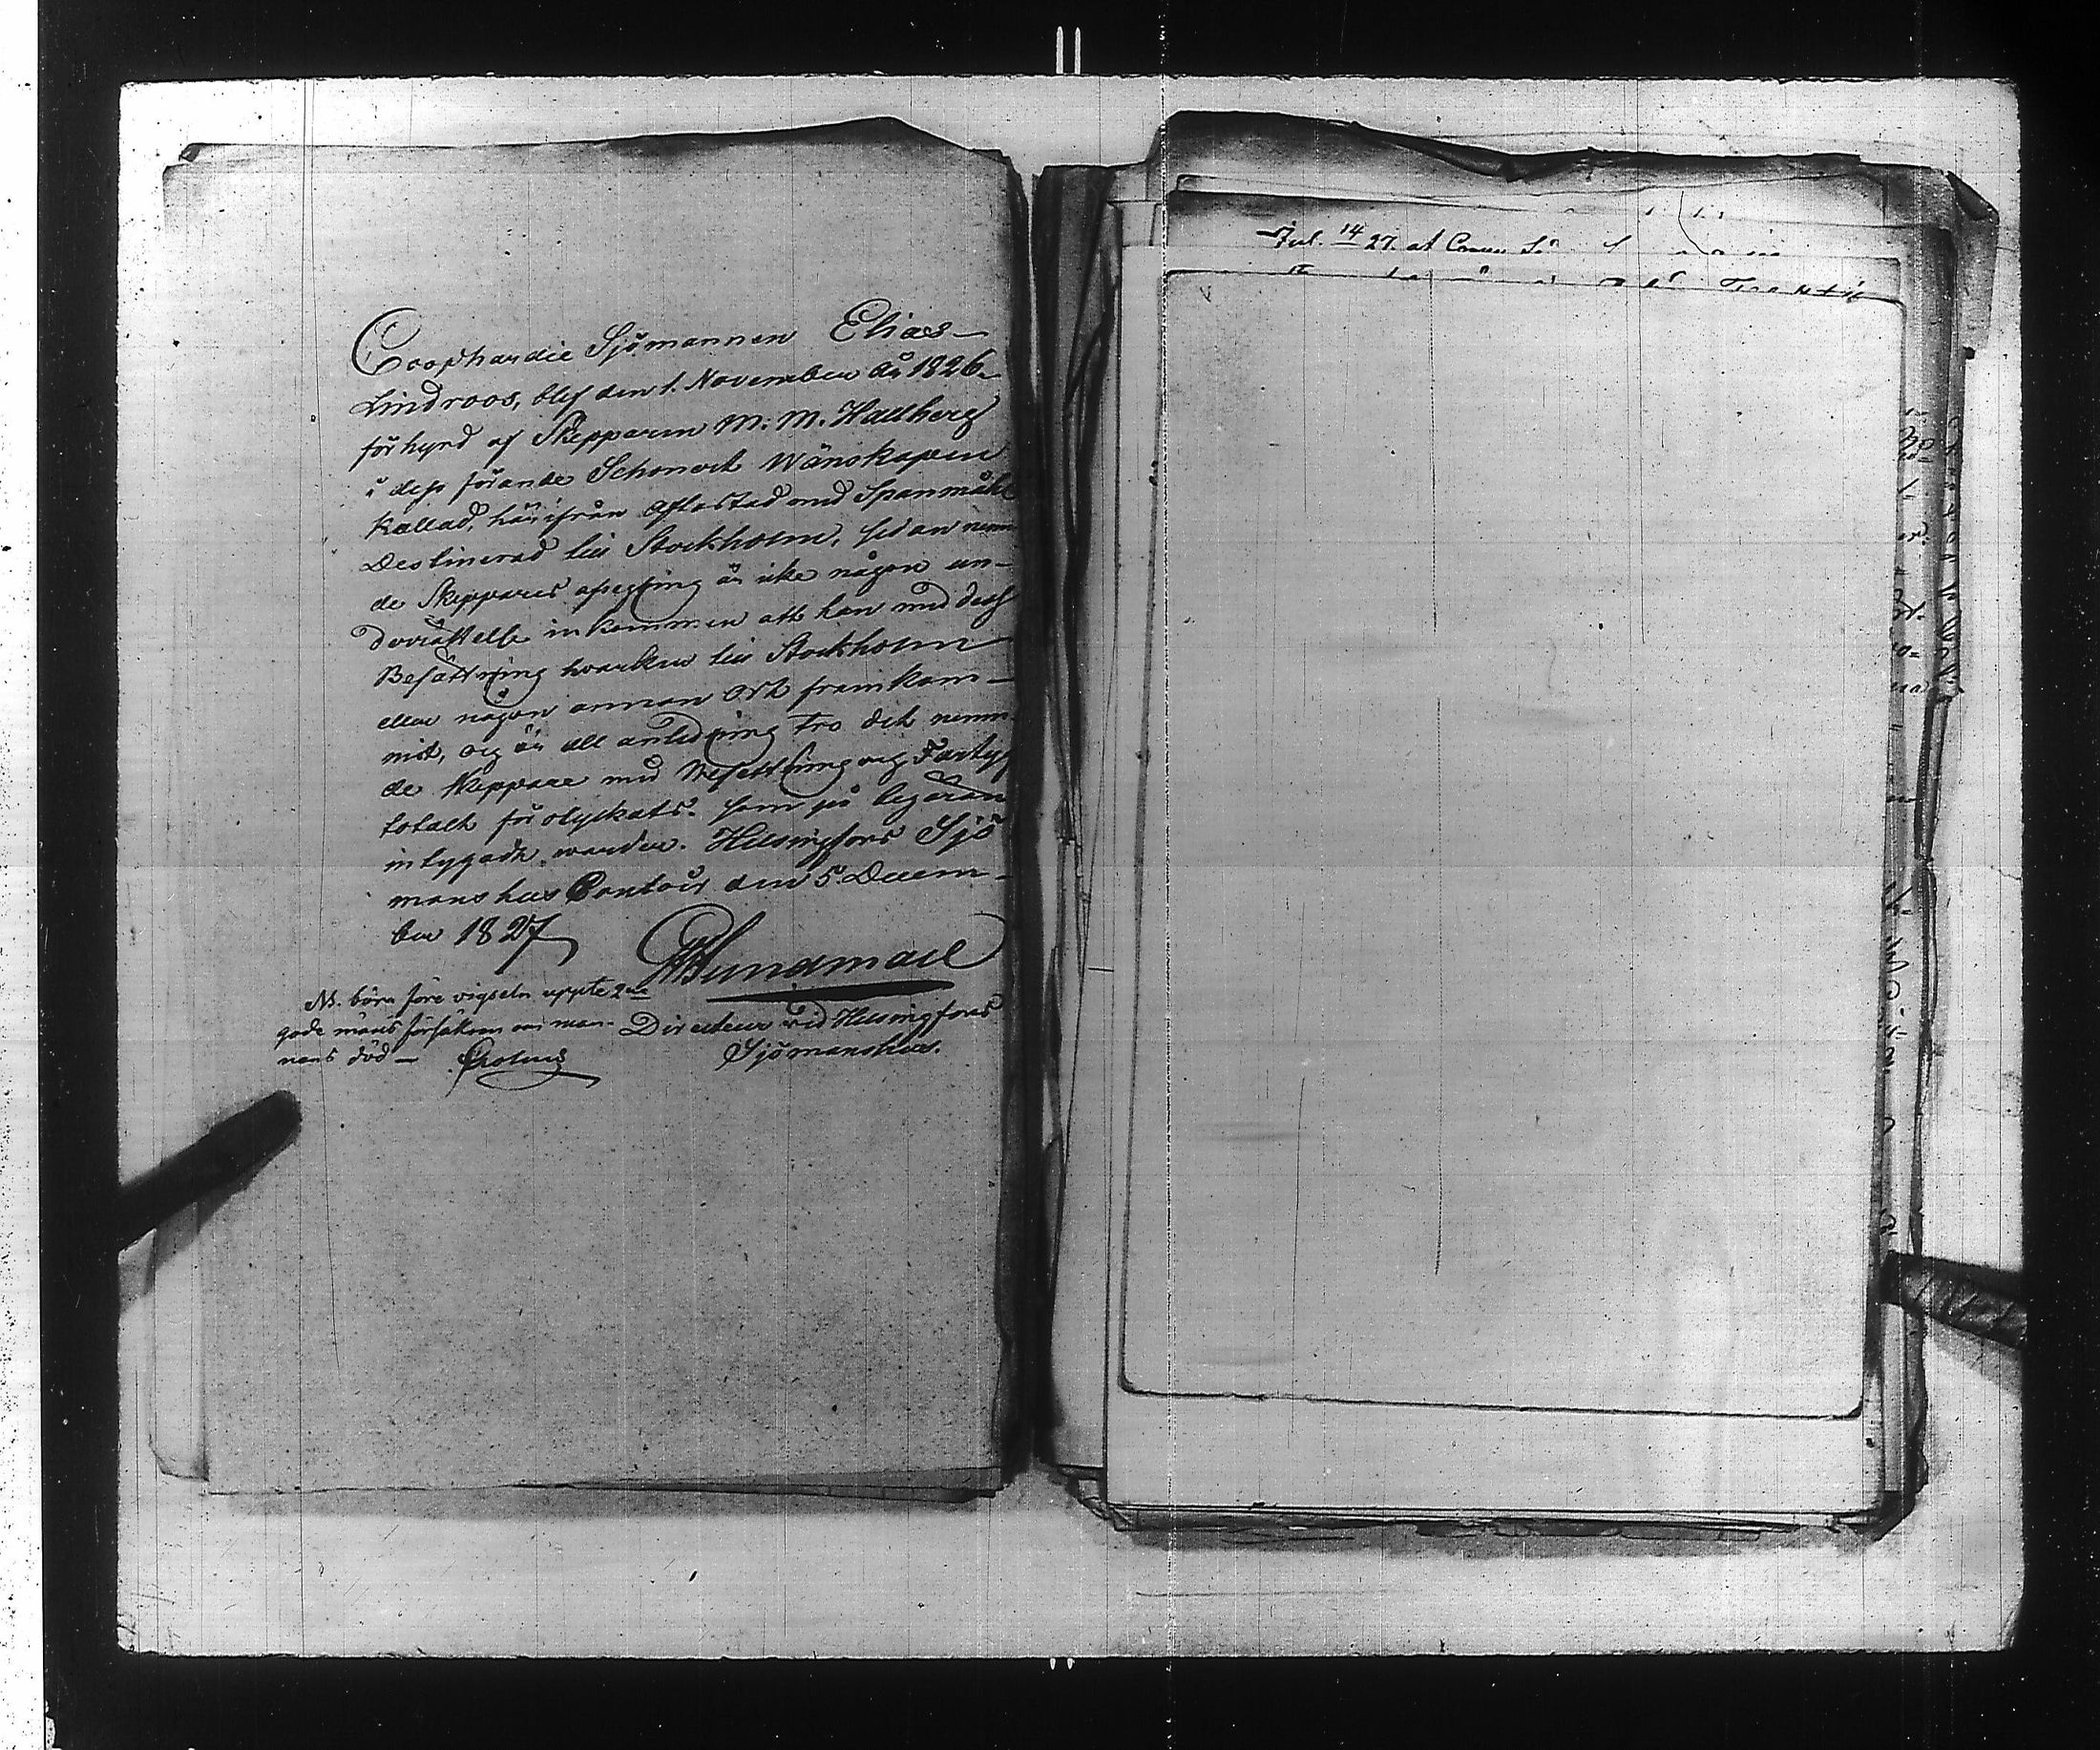 Coophardie Sjömannen Elias
Lindroos, blef den 1. November år 1826
förhyrd af Skepparen M. M. Hallberg
i dess förande Schonert Wänskapen
kallad, härifrån aflastad med Spanmåhl
Destinerad till Stockholm, sedan nemn
de Skeppares afsegling är icke någon un-
derrättelse inkommen att han med dess
Besättning hvarken till Stockholm
eller någon annan Ort framkom-
mit, og är all anledning tro det nemn
de Skeppare med Besettning og Fartyg
totalt förolyckats. som på begäran
intygadt warder. Helsingfors Sjö
mans hus Contoir den 5 Decem-
ber 1827
NB. böra före vigseln uppte 2ne
gode mäns försäkran om man-
nens död —
Directeur vid Helsingfors
Sjömanshus.
Jul. 14 27. at